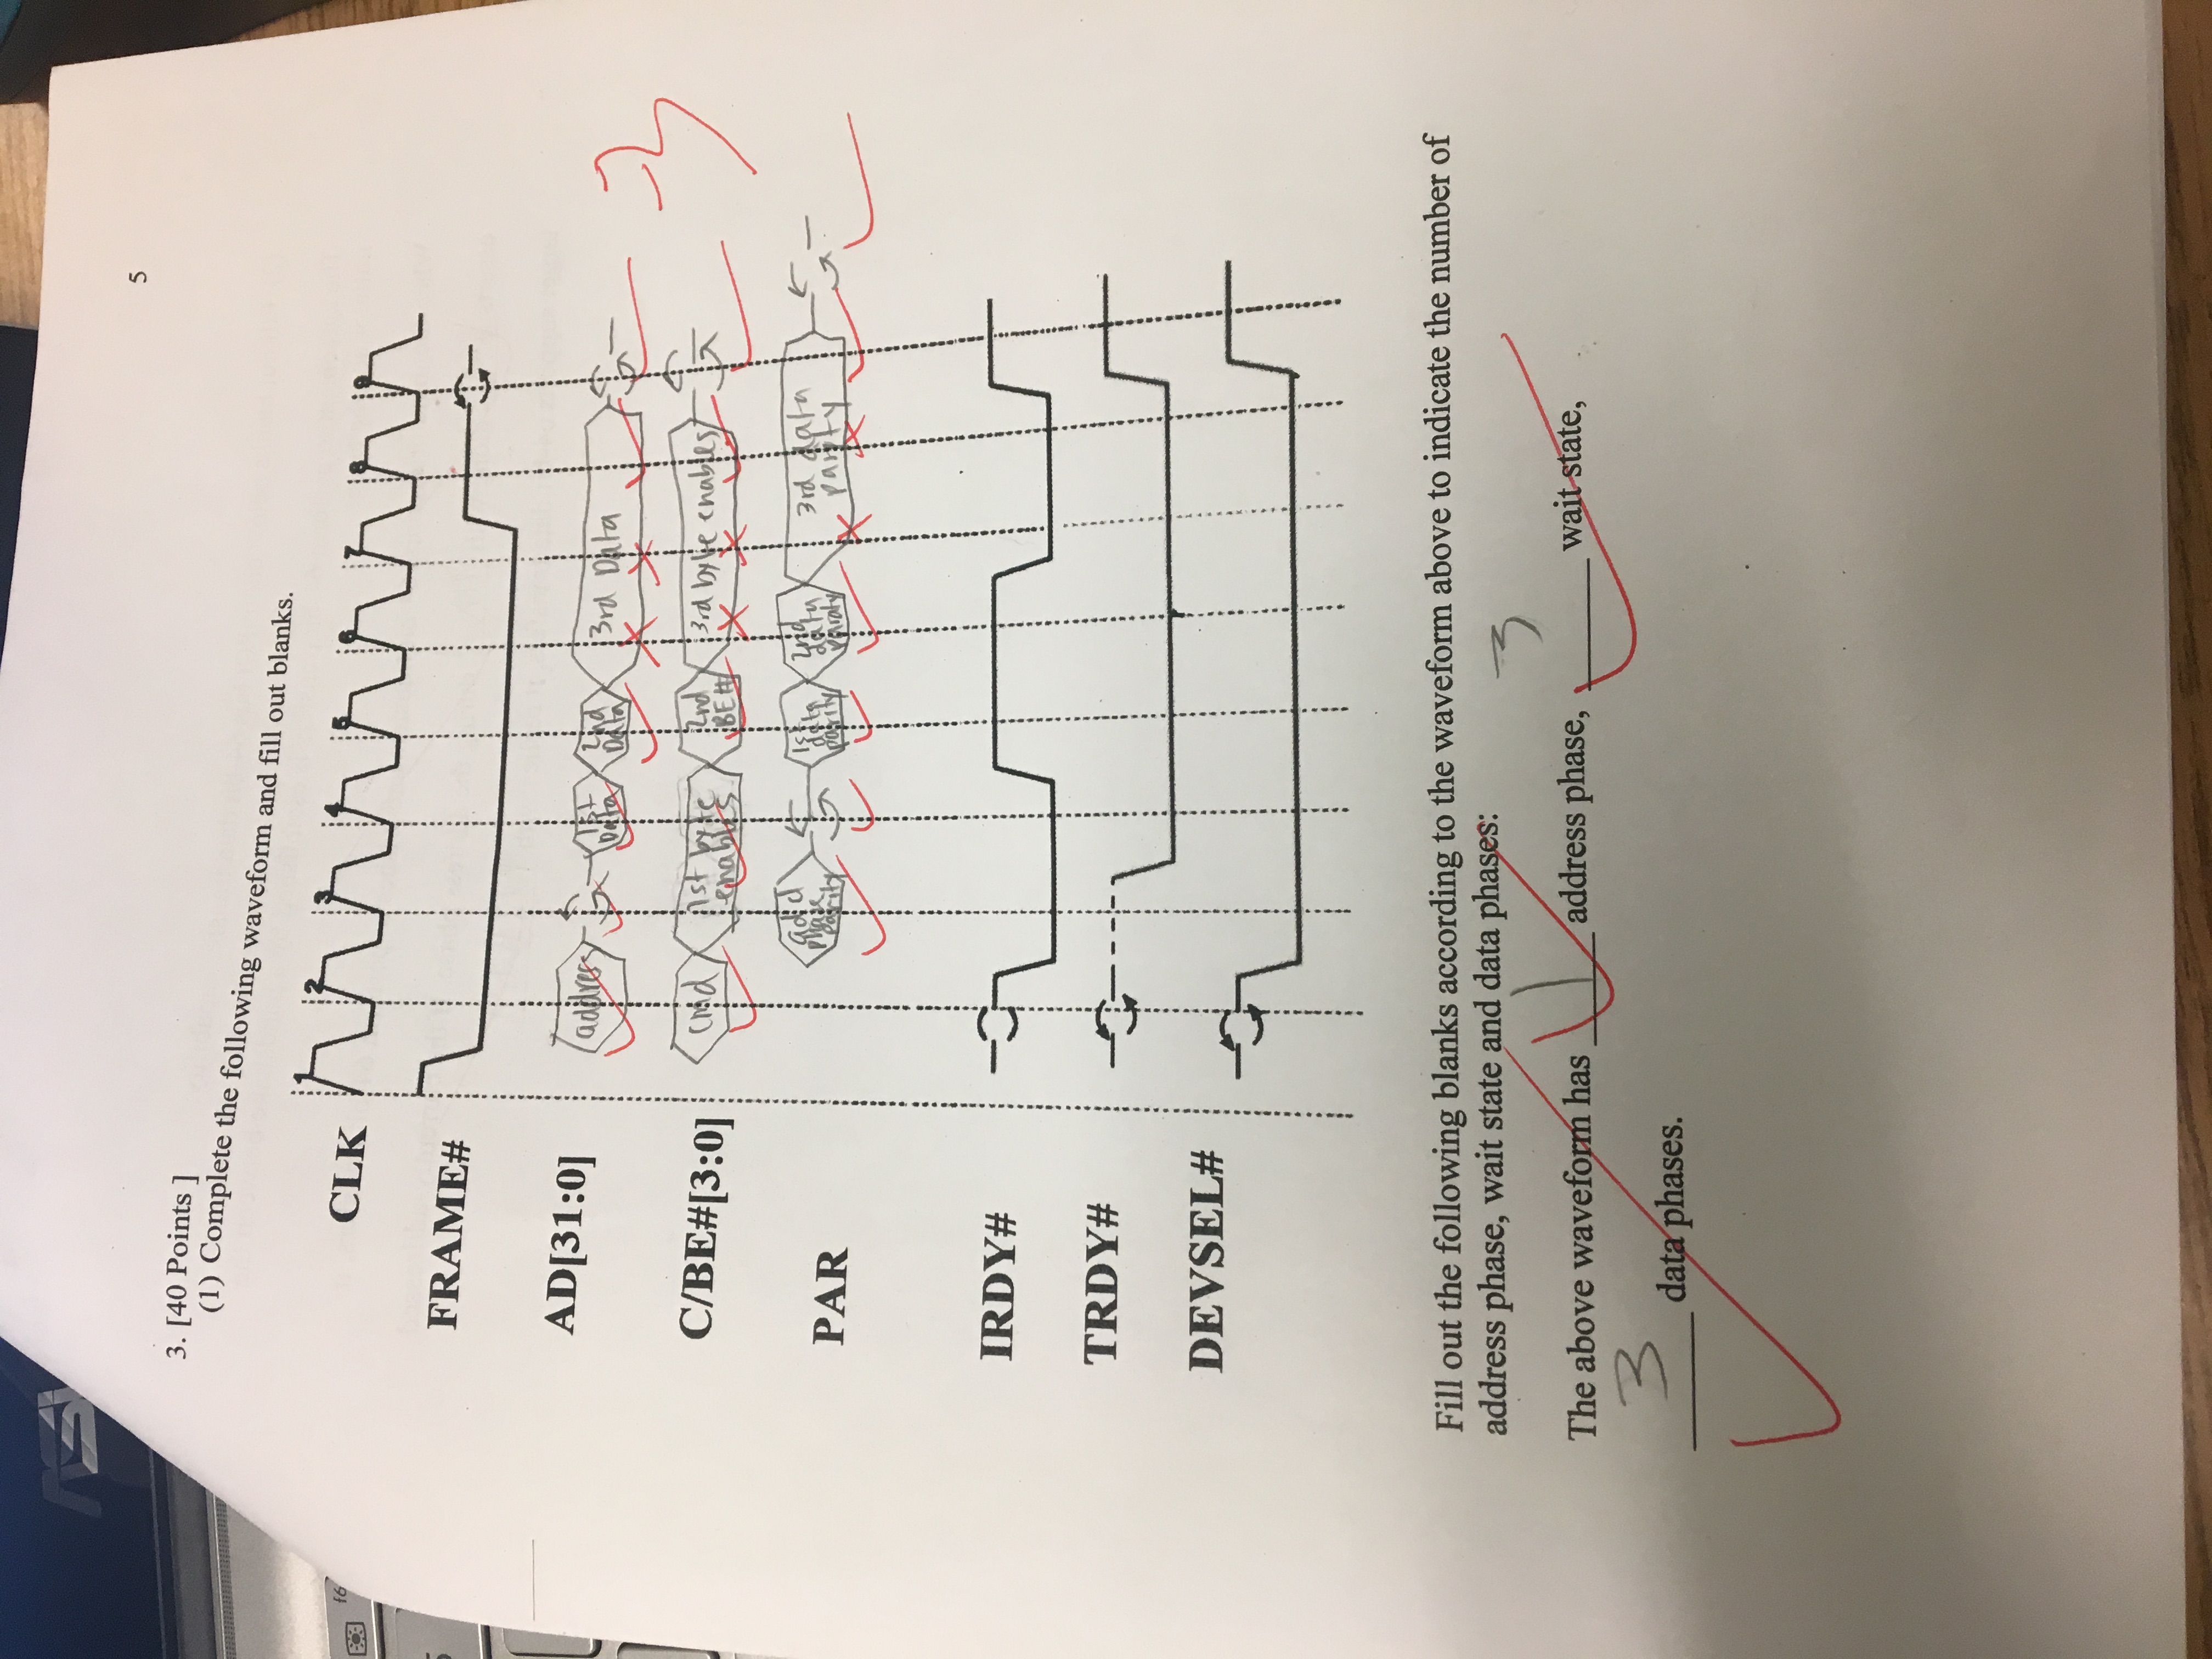 ASU
f6
5
5
3. [40 Points ]
(1) Complete the following waveform and fill out blanks.
1 2 3 4 5 6 7 8 9
CLK
FRAME#
AD[31:0] address 1st Data 2nd Data 3rd Data
-3
C/BE#[3:0] cmd 1st byte enables 2nd BE# 3rd byte enables
PAR add phase parity 1st data parity 2nd data paraty 3rd data parity
IRDY#
TRDY#
DEVSEL#
Fill out the following blanks according to the waveform above to indicate the number of
address phase, wait state and data phases:
The above waveform has 1 address phase, 3 wait state,
3 data phases.